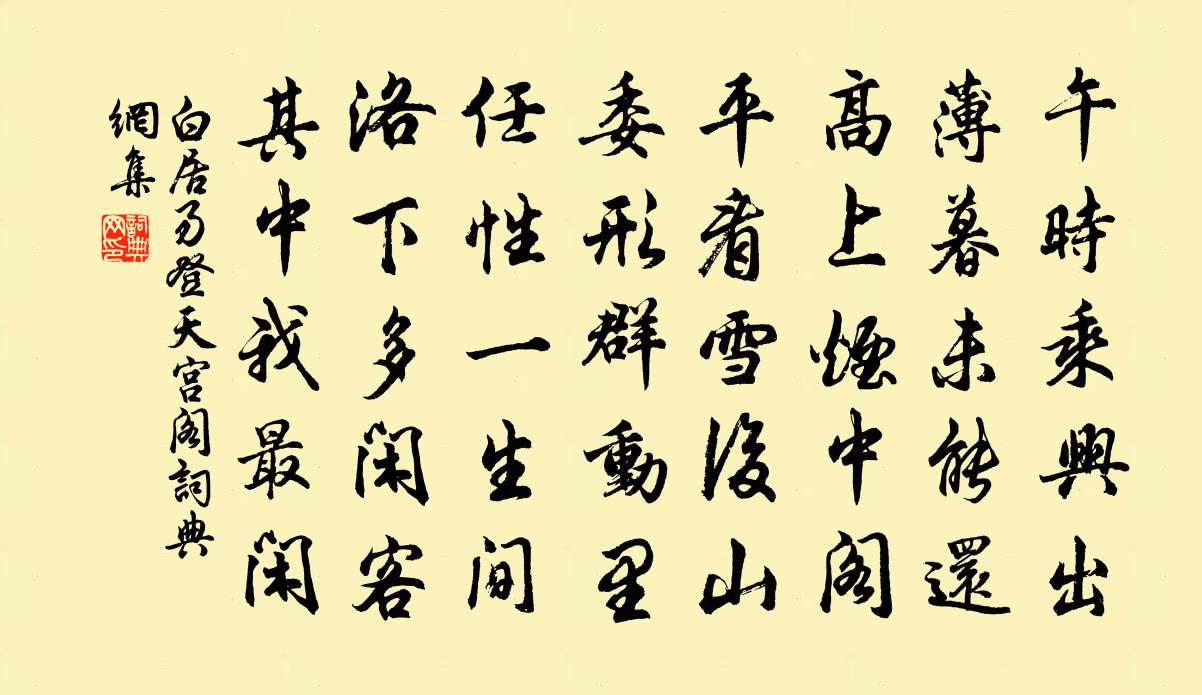 午時乘興出
薄暮未能還
高上煙中閣
平看雪後山
委形群動里
任性一生間
洛下多閑客
其中我最閑
白居易登天宮閣詞典
網集
詞典
网印